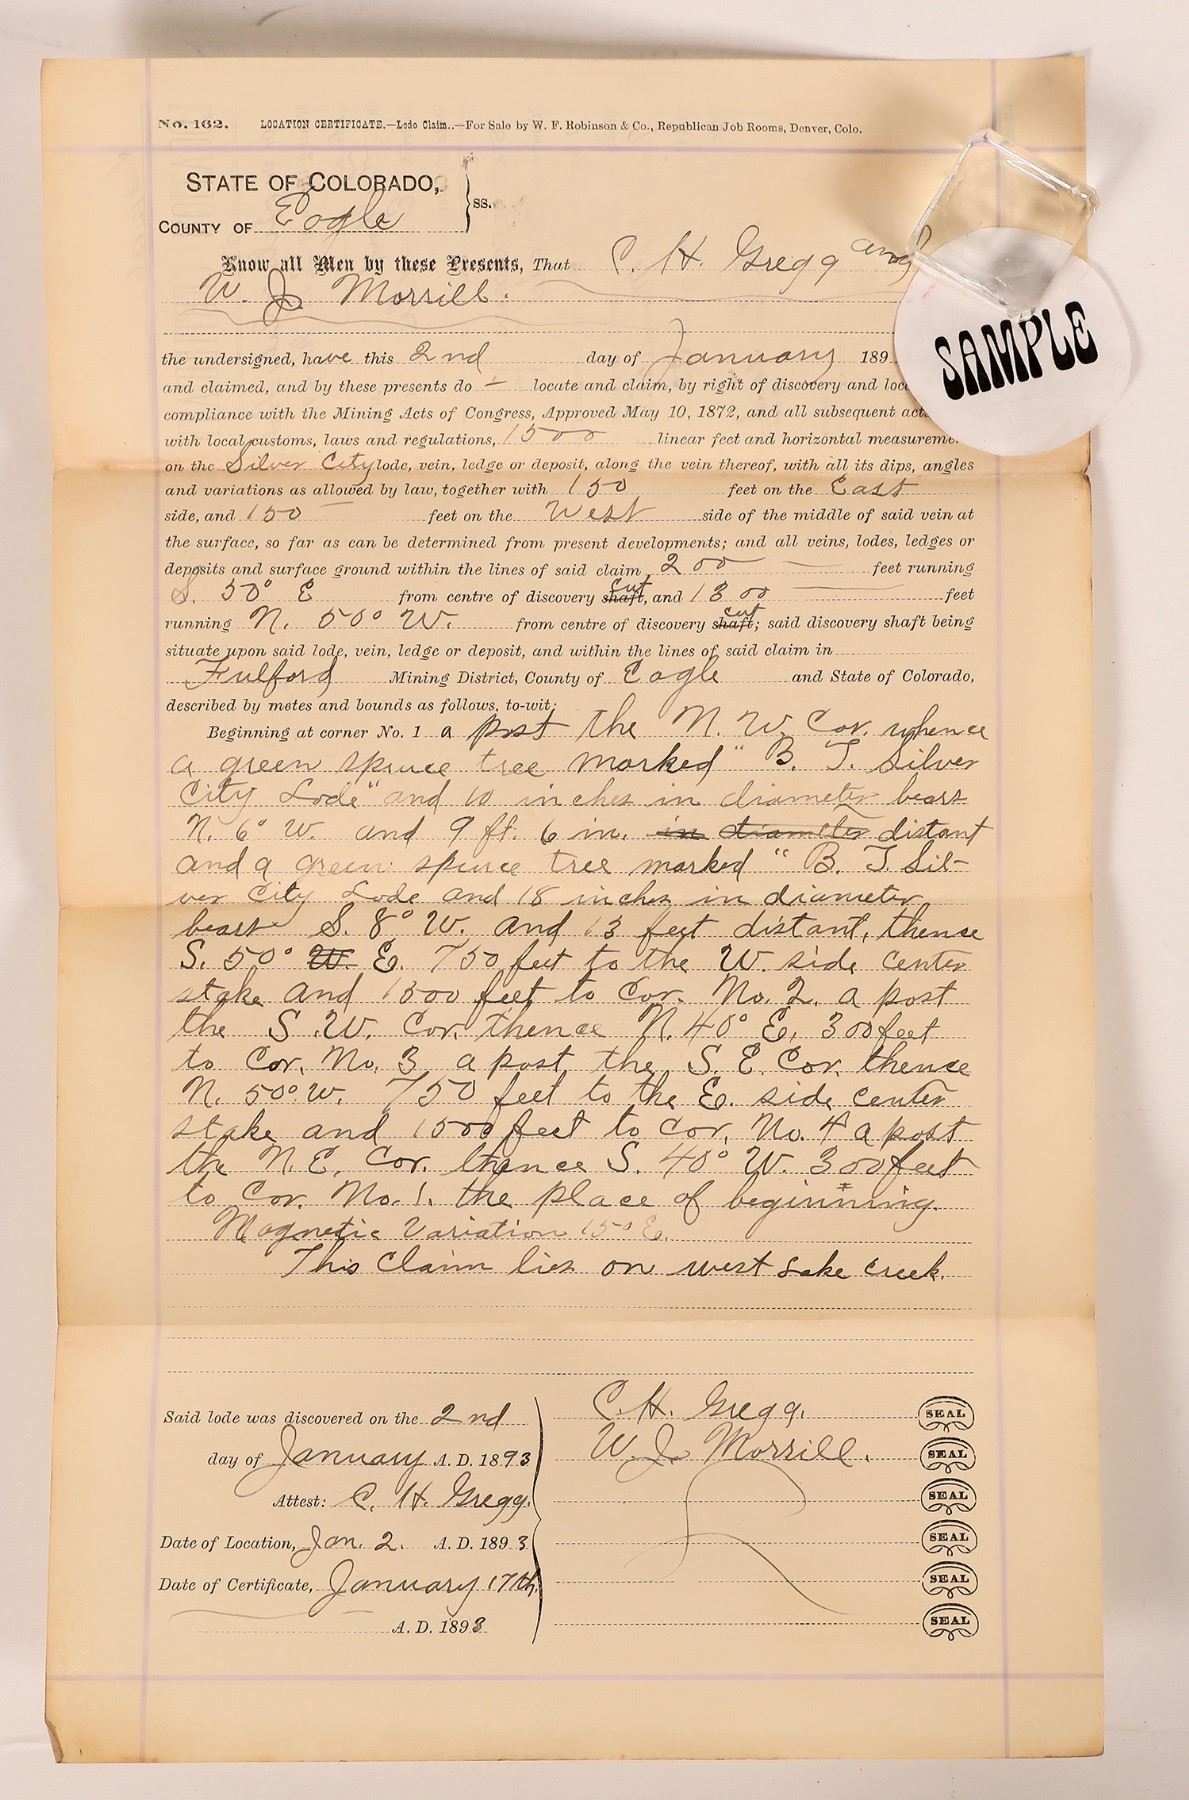 No. 162. LOCATION CERTIFICATE.—Lode Claim..—For Sale by W. F. Robinson & Co., Republican Job Rooms, Denver, Colo.
STATE OF COLORADO,
COUNTY OF Eagle ss.
Know all Men by these Presents, That C. H. Gregg and
W. J. Morrill.
SAMPLE
the undersigned, have this 2nd day of January 189
and claimed, and by these presents do — locate and claim, by right of discovery and
compliance with the Mining Acts of Congress, Approved May 10, 1872, and all subsequent
with local customs, laws and regulations, 1500 linear feet and horizontal
on the Silver City lode, vein, ledge or deposit, along the vein thereof, with all its dips, angles
and variations as allowed by law, together with 150 feet on the East
side, and 150 — feet on the West side of the middle of said vein at
the surface, so far as can be determined from present developments; and all veins, lodes, ledges or
deposits and surface ground within the lines of said claim 200 — feet running
S. 50° E from centre of discovery shaft, Cut and 1300 — feet
running N. 50° W. from centre of discovery shaft; Cut said discovery shaft being
situate upon said lode, vein, ledge or deposit, and within the lines of said claim in
Fulford Mining District, County of Eagle and State of Colorado,
described by metes and bounds as follows, to-wit;
Beginning at corner No. 1 a post the N. W. Cor. whence
a green spruce tree marked "B. T. Silver
City Lode" and 10 inches in diameter bears
N. 6° W. and 9 ft. 6 in. in diameter distant
and a green spruce tree marked "B. T. Sil-
ver City Lode and 18 inches in diameter
bears S. 8° W. and 13 feet distant, thense
S. 50° W. E. 750 feet to the W. side center
stake and 1500 feet to Cor. No. 2. a post
the S. W. Cor. thence N. 40° E. 300 feet
to Cor. No. 3 a post the S. E. Cor. thense
N. 50° W. 750 feet to the E. side center
stake and 1500 feet to Cor. No. 4 a post
the N. E. Cor. thence S. 40° W. 300 feet
to Cor. No. 1. the place of beginning.
Magnetic Variation 15° E.
This Claim lies on west Lake creek.
Said lode was discovered on the 2nd
day of January A. D. 1893
Attest: C. H. Gregg.
Date of Location, Jan. 2. A. D. 1893
Date of Certificate, January 17th
A. D. 1893
C. H. Gregg. SEAL
W. J. Morrill. SEAL
SEAL
SEAL
SEAL
SEAL